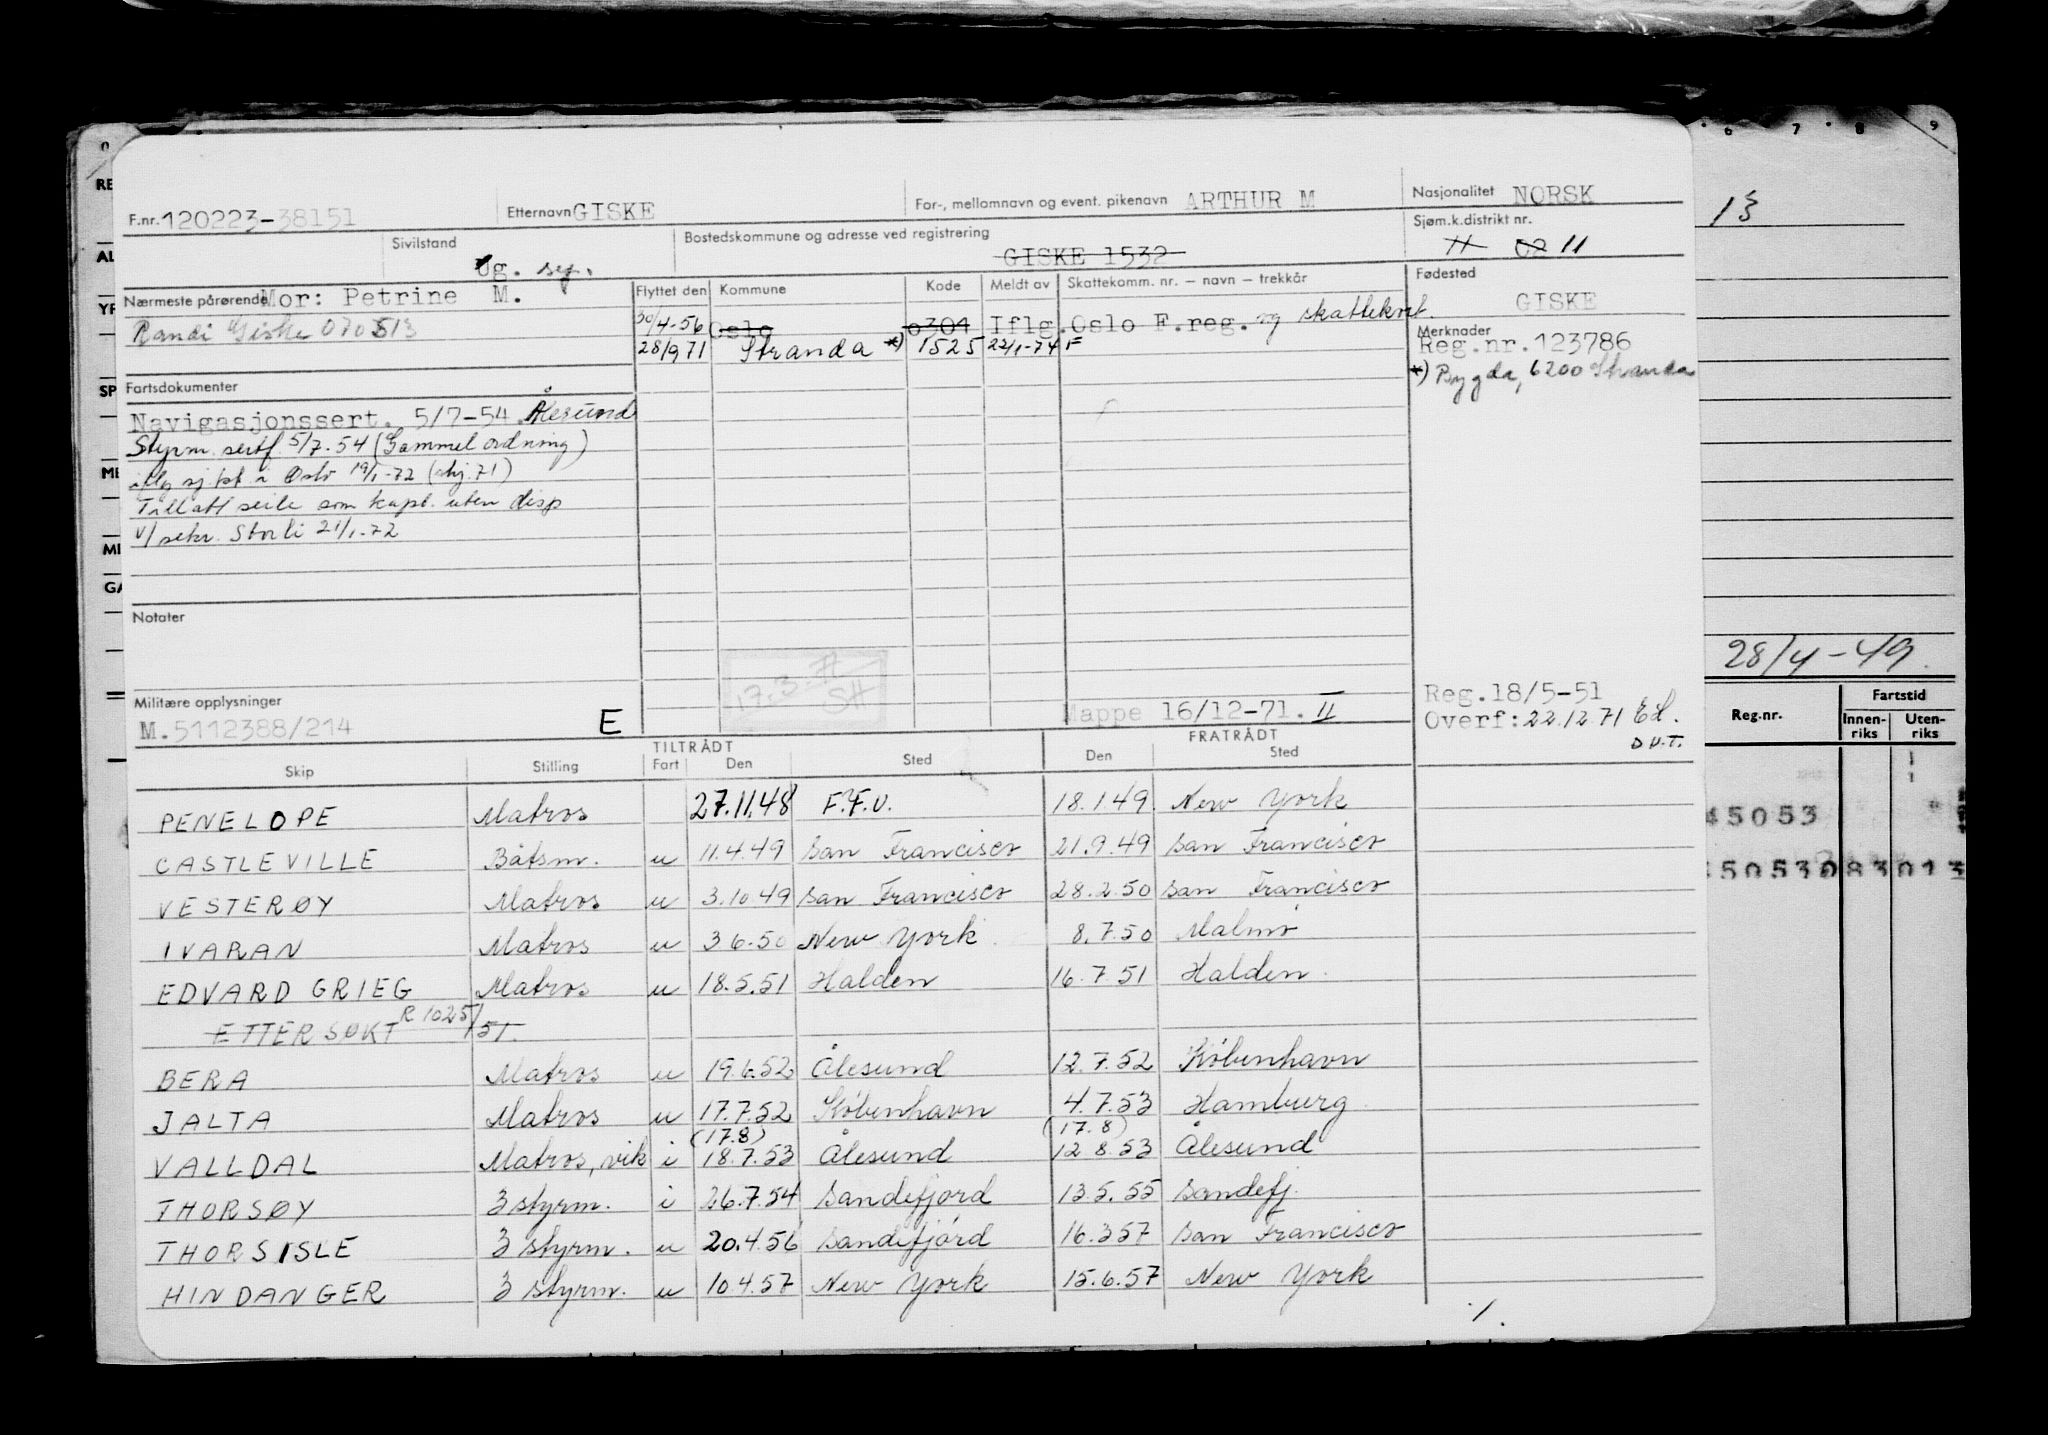 F.nr. 120223-38151 Etternavn GISKE For-, mellomnavn og event. pikenavn ARTHUR M Nasjonalitet NORSK
Sivilstand Ug. Bostedskommune og adresse ved registrering GISKE 1532 Sjøm.k.distrikt nr. 11 02 11
Nærmeste pårørende Mor: Petrine M.
Randi Giske 070513
Flyttet den Kommune Kode Meldt av Skattekomm. nr. – navn – trekkår
30/4-56 Oslo 0301 Iflg. Oslo F.reg. og skattekort.
28/9 71 Stranda *) 1525 22/1-74 F
Fødested GISKE
Merknader
Reg.nr.123786
*) Bygda, 6200 Stranda
Fartsdokumenter
Navigasjonssert. 5/7-54. Ålesund
Styrm. sertf. 5/7.54 (Gammel ordning)
iflg sj.kt. i Oslo 19/1-72 (skj. 71)
Tillatt seile som kapt. uten disp
v/ sekr. Storli 21/1-72
Notater
17.3.7
SH
Militære opplysninger
M.5112388/214 E
Mappe 16/12-71. II
Reg.18/5-51
Overf: 22.12.71
D.U.T.
TILTRÅDT FRATRÅDT
Skip Stilling Fart Den Sted Den Sted
PENELOPE Matros 27.11.48 F.F.U. 18.1.49. New York
CASTLEVILLE Båtsm. u 11.4.49 San Francisco 21.9.49 San Francisco
VESTERØY Matros u 3.10.49 San Francisco 28.2.50 San Francisco
IVARAN Matros u 3 6.50 New York 8.7.50 Malmö
EDVARD GRIEG Matros u 18.5.51 Halden 16.7.51 Halden
ETTERSØKT R 1025/51.
BERA Matros u 19.6.52 Ålesund 12.7.52 København
JALTA Matros u 17.7.52 København 4.7.53 Hamburg
(17.8) (17.8)
VALLDAL Matros, vik i 18.7.53 Ålesund 12 8.53 Ålesund
THORSØY 3 styrm. i 26.7.54 Sandefjord 13.5.55 Sandefj.
THORSISLE 3 styrm. u 20.4.56 Sandefjord 16.357 San Francisco
HINDANGER 3 styrm. u 10.4.57 New York 15.6.57 New York
1.
6 7 8 9
13
28/4-49.
Reg.nr. Fartstid
Innen-riks Uten-riks
45053